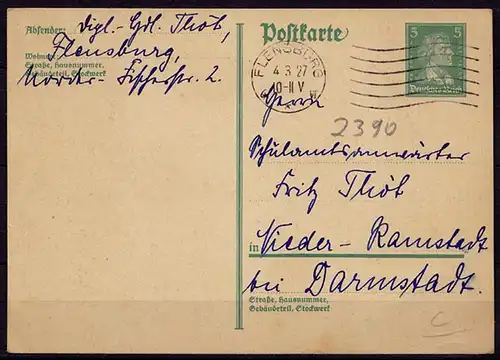 Absender: Dipl.-Hdl. Thöt,
Flensburg,
Wohnort
Straße, Hausnummer,
Gebäudeteil, Stockwerk
Norder-Fischerstr. 2
Postkarte
FLENSBURG
4.3.27
10-11 V
5 5
Deutsches Reich
Herrn
2390
Schulamtsanwärter
Fritz Thöt
in Nieder-Ramstadt
bei Darmstadt.
Straße, Hausnummer,
Gebäudeteil, Stockwerk
C